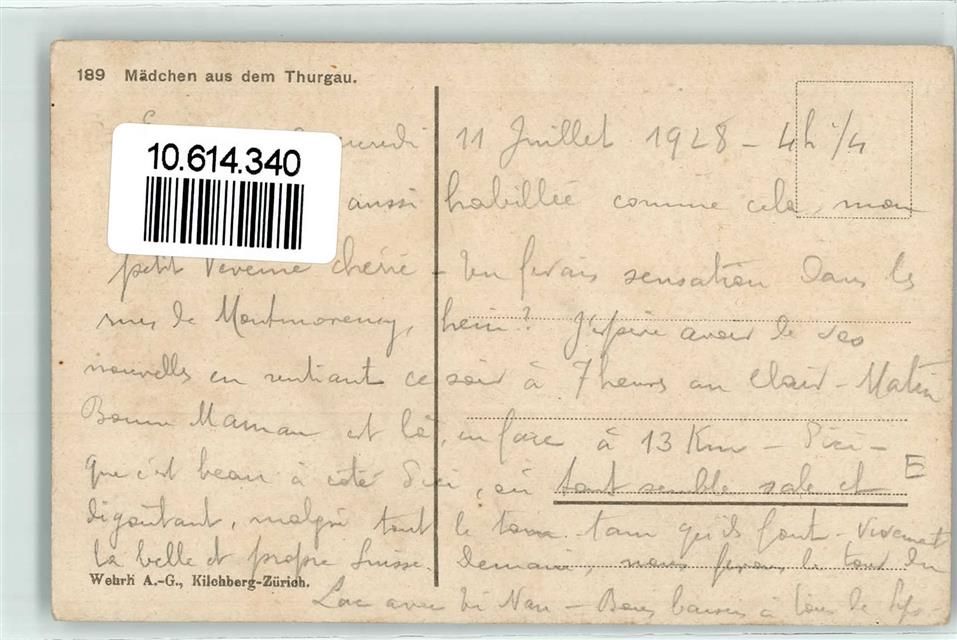 189 Mädchen aus dem Thurgau.
10.614.340
11 Juillet 1928 - 4h 1/4
aussi habillée comme cela, mon
petit chérie - Tu ferais sensation dans les
rues de Montmorency, hein? J'espère avoir de vos
nouvelles en rentrant ce soir à 7 heures au Clair-Matin
Bonne Maman est là, en face à 13 Km -
que c'est beau à côté d'ici, où tout semble sale et
E
dégoûtant, malgré tout le tam tam qu'ils font - Vivement
la belle et propre Suisse. Demain, nous ferons le tour du
Wehrli A.-G., Kilchberg-Zürich.
Lac avec - Bons baisers à tous de